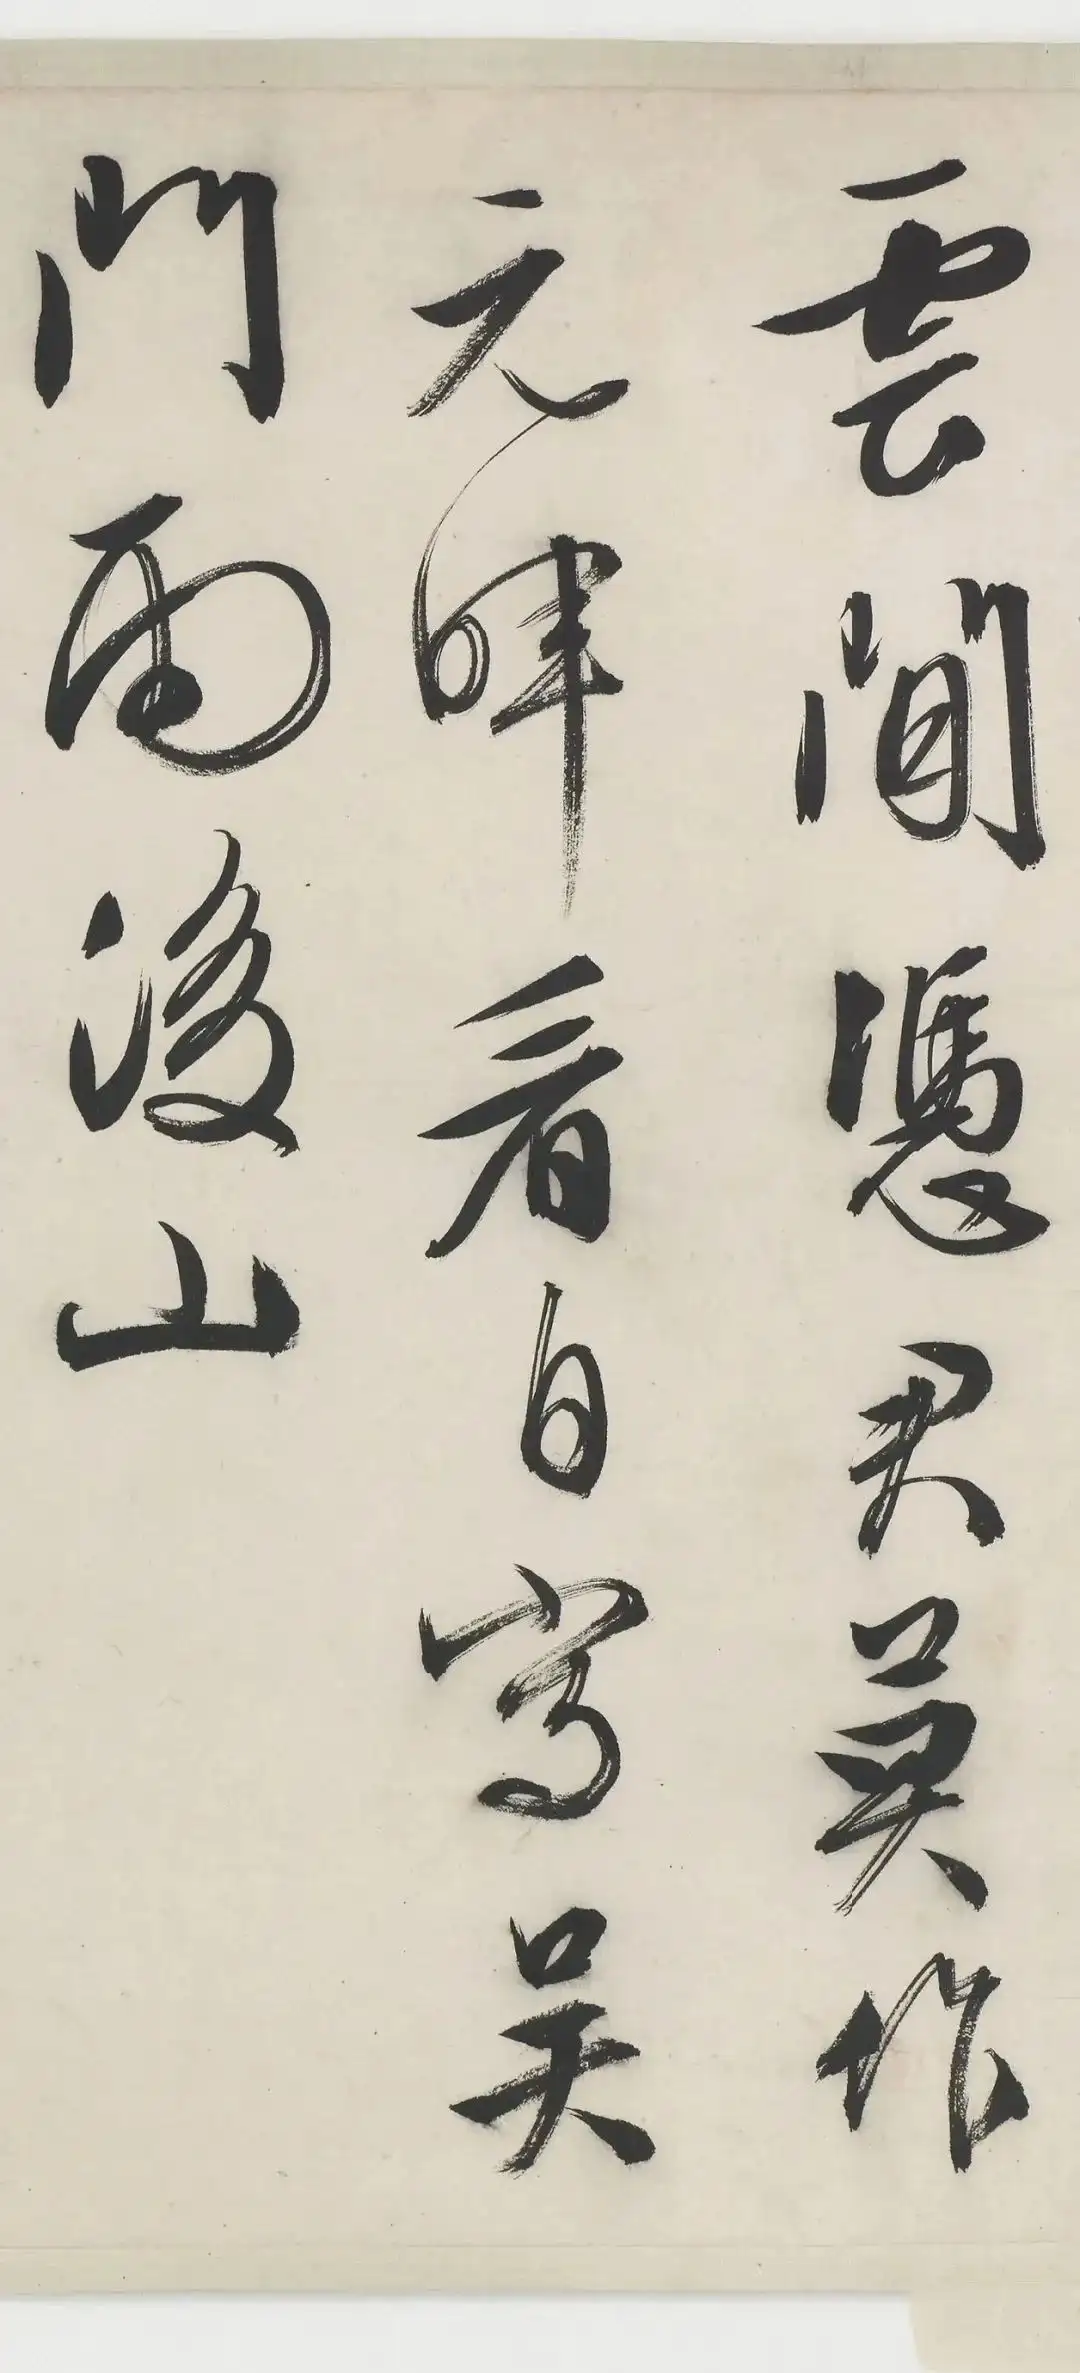 雲間憑君莫作
元暉看自寫吳
門雨後山